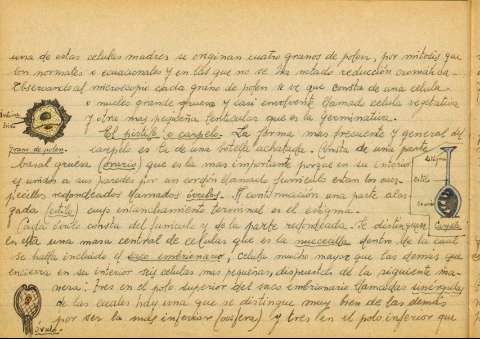 una de estas celulas madres se originan cuatro granos de polen, por mitosis que
son normales o ecuacionales y en las que no se ha notado reducción cromatica.
Observando al microscopio cada grano de polen se ve que consta de una celula
o nucleo grande gruesa y casi envolvente llamado celula vegetativa
y otra mas pequeña, lenticular que es la germinativa.
El pistilo o carpelo. La forma mas frecuente y general del
grano de polen.
carpelo es la de una botella achatada. Consta de una parte
basal gruesa (ovario) que es la mas importante porque en su interior
y unidos a sus paredes por un cordón llamado funiculo estan los
redondeados llamados óvulos. A continuación una parte alar
gada (estilo) cuyo terminal es el estigma.
estilo
Cada óvulo consta del funiculo y de la parte redondeada. Se distinguen
en esta una masa central de celulas que es la nuccella dentro de la cual
se halla incluido el saco embrionario, celula mucho mayor que las demas que
encierra en su interior celulas mas pequeñas, dispuestas de la siguiente ma
nera: Tres en el polo superior del saco embrionario llamadas sinérgidas
de las cuales hay una que se distingue muy bien de las demás
por ser la mas inferior (oosfera) y tres en el polo inferior que
óvulo.